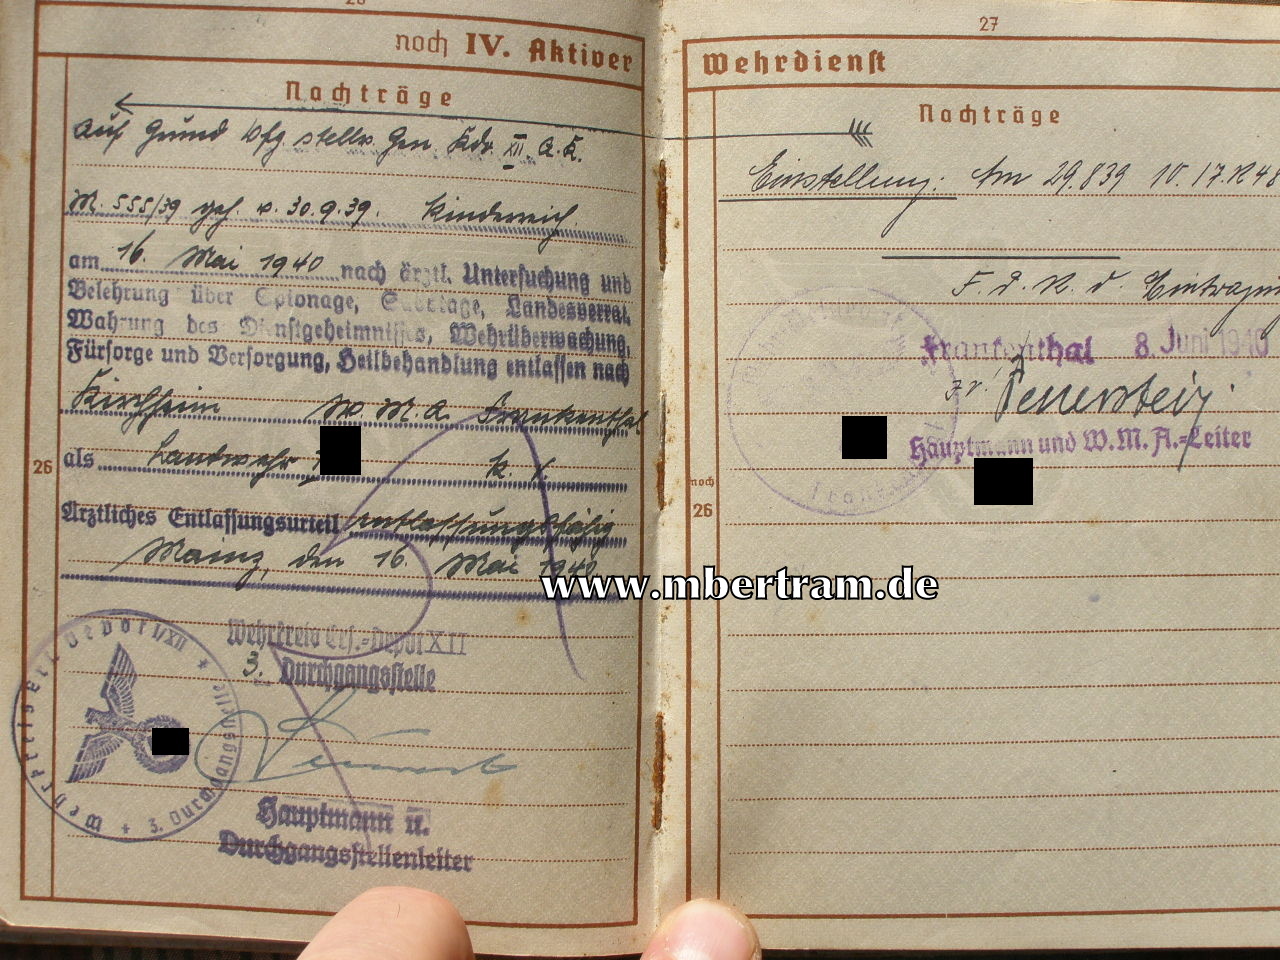 noch IV. Aktiver
Nachträge
Auf Grund Vfg. stellv. Gen. Kdo. XII. A.K.
M. 555/39 geh. v. 30.9.39. Kinderreich
am 16. Mai 1940 nach ärztl. Untersuchung und
Belehrung über Spionage, Sabotage, Landesverrat,
Wahrung des Dienstgeheimnisses, Wehrüberwachung,
Fürsorge und Versorgung, Heilbehandlung entlassen nach
Kirchheim W.M.A. Frankenthal
26
als Landwehr k.
Ärztliches Entlassungsurteil entlassungsfähig
Mainz, den 16. Mai 1940
Wehrkreis Ers.-Depot XII
3. Durchgangsstelle
Wehrkreis Ers. Depot I/XII + 3. Durchgangsstelle +
Hauptmann u.
Durchgangsstellenleiter
27
Wehrdienst
Nachträge
Einstellung: Am 29.8.39
F. d. R. d. Eintragung
Frankenthal 8. Juni 1940
Hauptmann und W.M.A.-Leiter
noch
26
www.mbertram.de